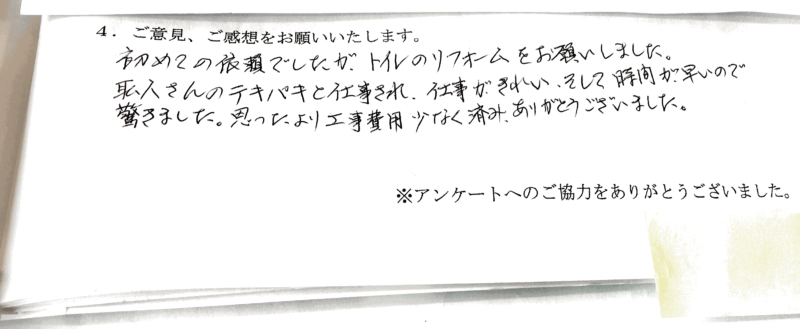 4．ご意見、ご感想をお願いいたします。
初めての依頼でしたが、トイレのリフォームをお願いしました。
職人さんのテキパキと仕事され、仕事がきれい、そして時間が早いので
驚きました。思ったより工事費用少なく済み、ありがとうございました。
※アンケートへのご協力をありがとうございました。